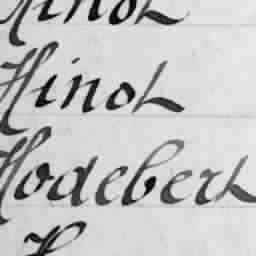 Hinot
Hinot
Hodebert
H